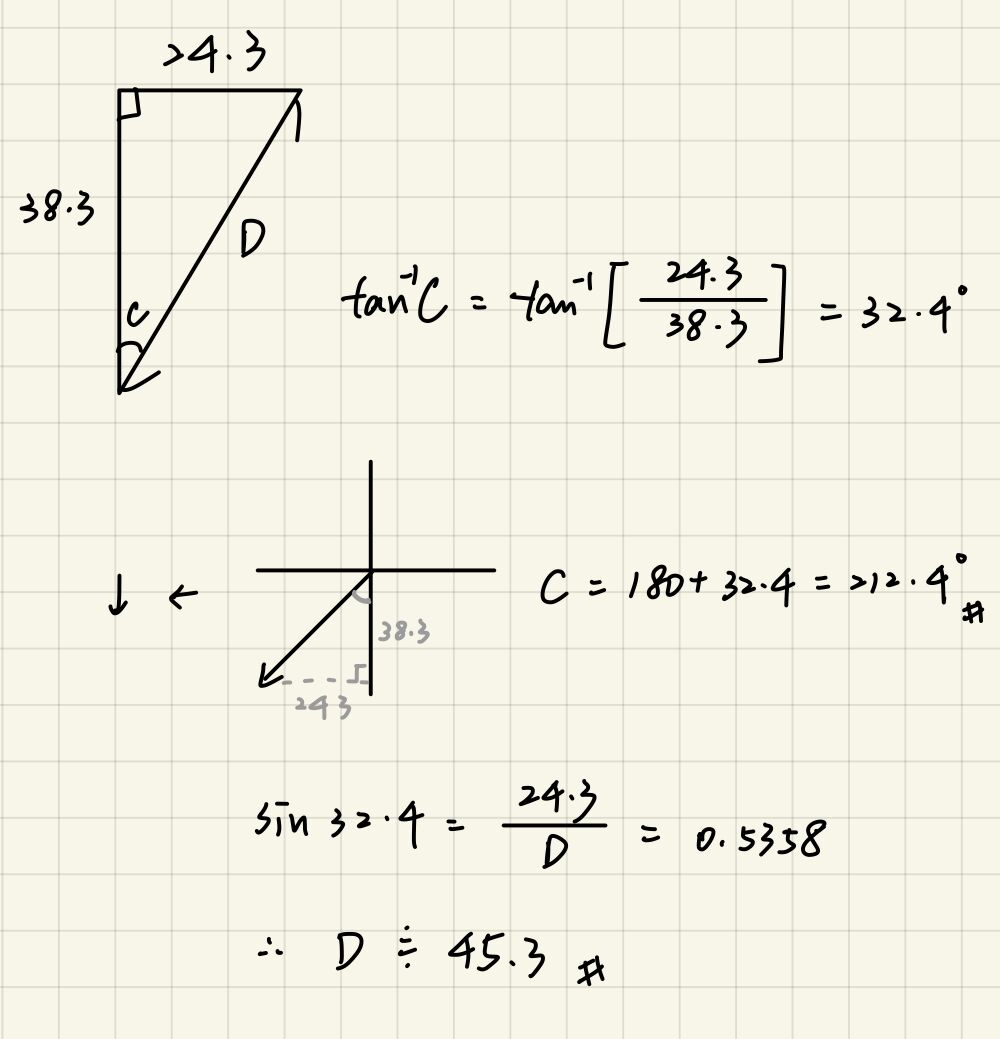 24.3
38.3
D
C
tan⁻¹C = tan⁻¹[24.3/38.3] = 32.4°
↓ ←
38.3
243
C = 180 + 32.4 = 212.4° #
sin 32.4 = 24.3/D = 0.5358
∴ D ≑ 45.3 #